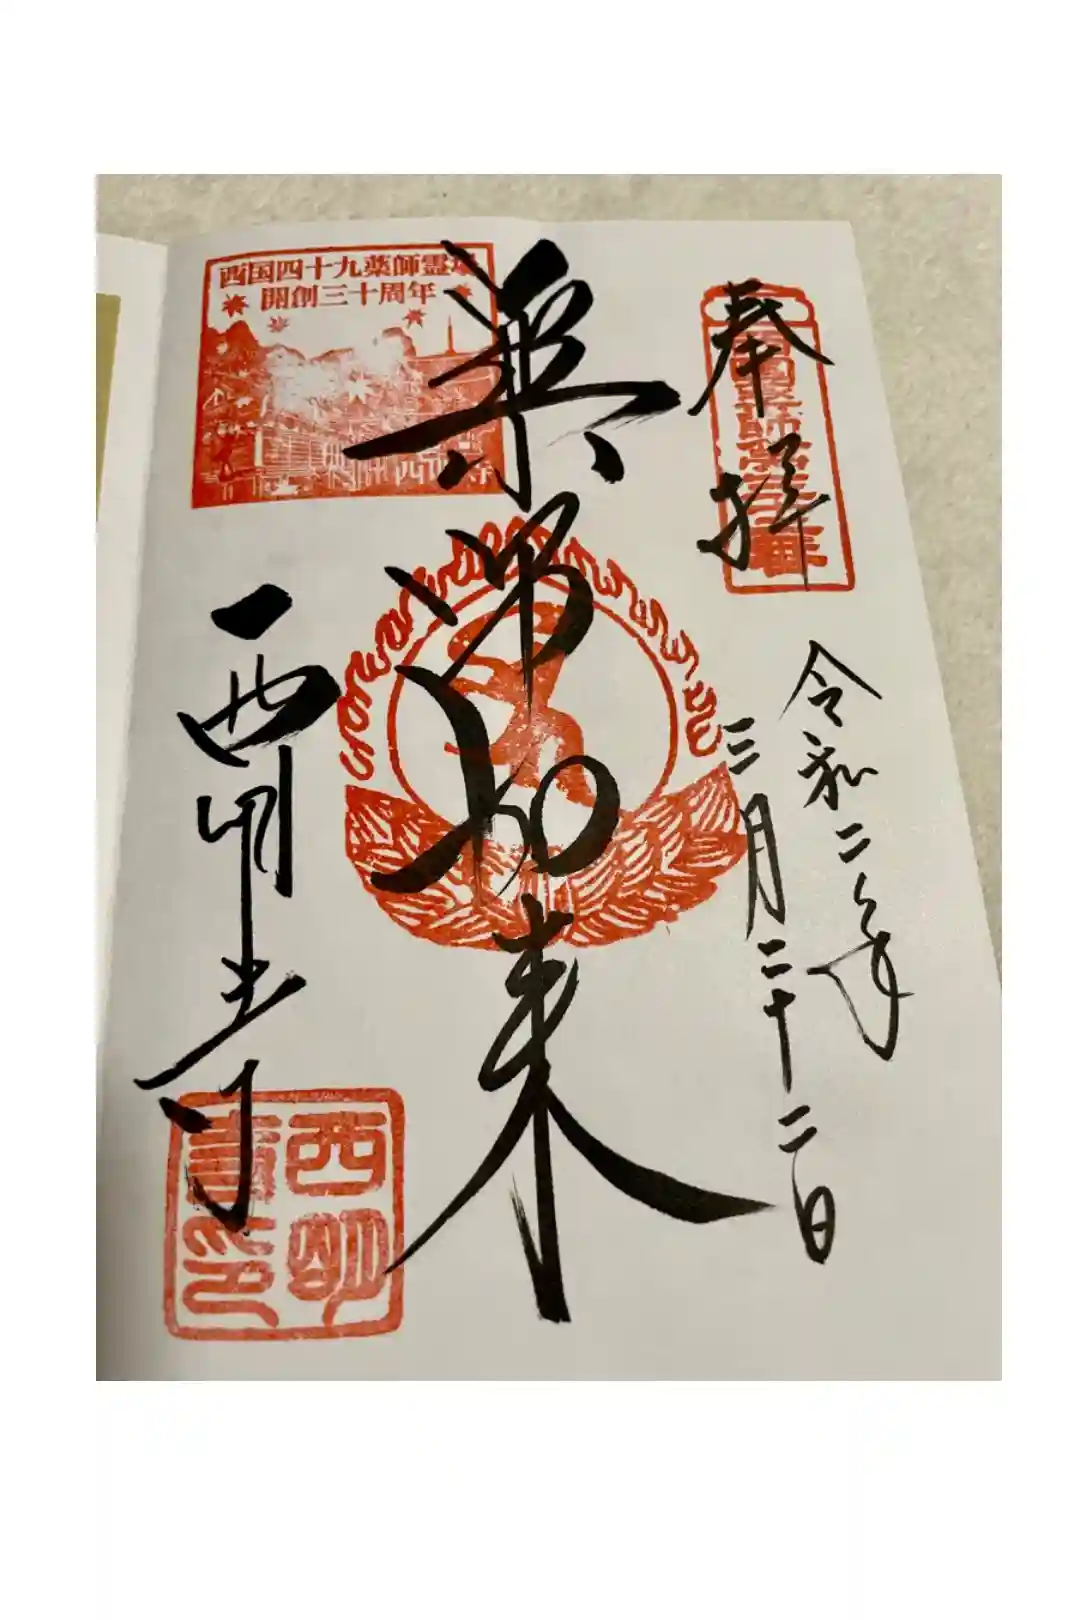 奉拝
令和二年
三月二十二日
薬師如来
西国四十九薬師霊場
開創三十周年
西明寺
西明
寺印